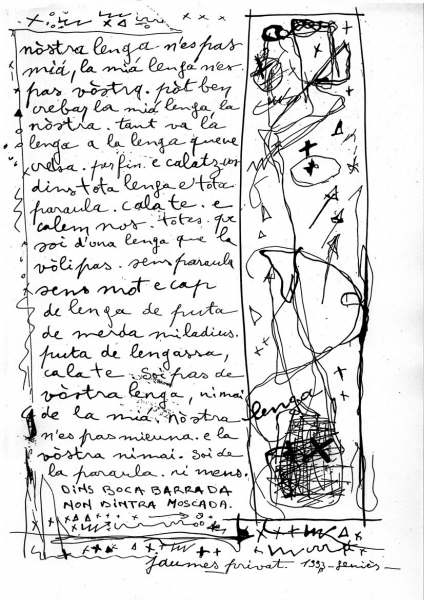 nòstra lenga. n'es pas
miá, la miá lenga n'es
pas vòstra. pòt ben
crebar la miá lenga, la
nòstra. tant va la
lenga a la lenga que ve
creba. per fin. e calatz vos
dins tota lenga e tota
paraula. cala te. e
calem nos. totes. que
soi d'una lenga que la
vòli pas. sens paraula
sens mot e cap
de lenga de puta
de merda miladius.
puta de lengassa,
cala te. Soi pas de
vòstra lenga, ni mai
de la miá. nòstra
n'es pas mieuna. e la
vòstra nimai. soi de
la paraula. ni mens.
DINS BOCA BARRADA
NON DINTRA MOSCADA.
lenga
jaumes privat. 1993